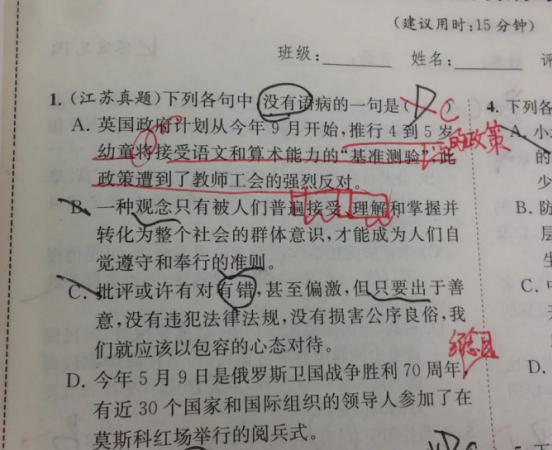 (建议用时:15分钟)
班级: 姓名: 评
1.(江苏真题)下列各句中,没有语病的一句是( D C )
A. 英国政府计划从今年9月开始,推行4到5岁
的政策
幼童将接受语文和算术能力的“基准测验”,此
政策遭到了教师工会的强烈反对。
B. 一种观念只有被人们普遍接受、理解和掌握并
转化为整个社会的群体意识,才能成为人们自
觉遵守和奉行的准则。
C. 批评或许有对有错,甚至偏激,但只要出于善
意,没有违犯法律法规,没有损害公序良俗,我
们就应该以包容的心态对待。
D. 今年5月9日是俄罗斯卫国战争胜利70周年,
有近30个国家和国际组织的领导人参加了在
莫斯科红场举行的阅兵式。
4. 下列各
A. 小
的
少
B. 防
层
生
C. 中
D.